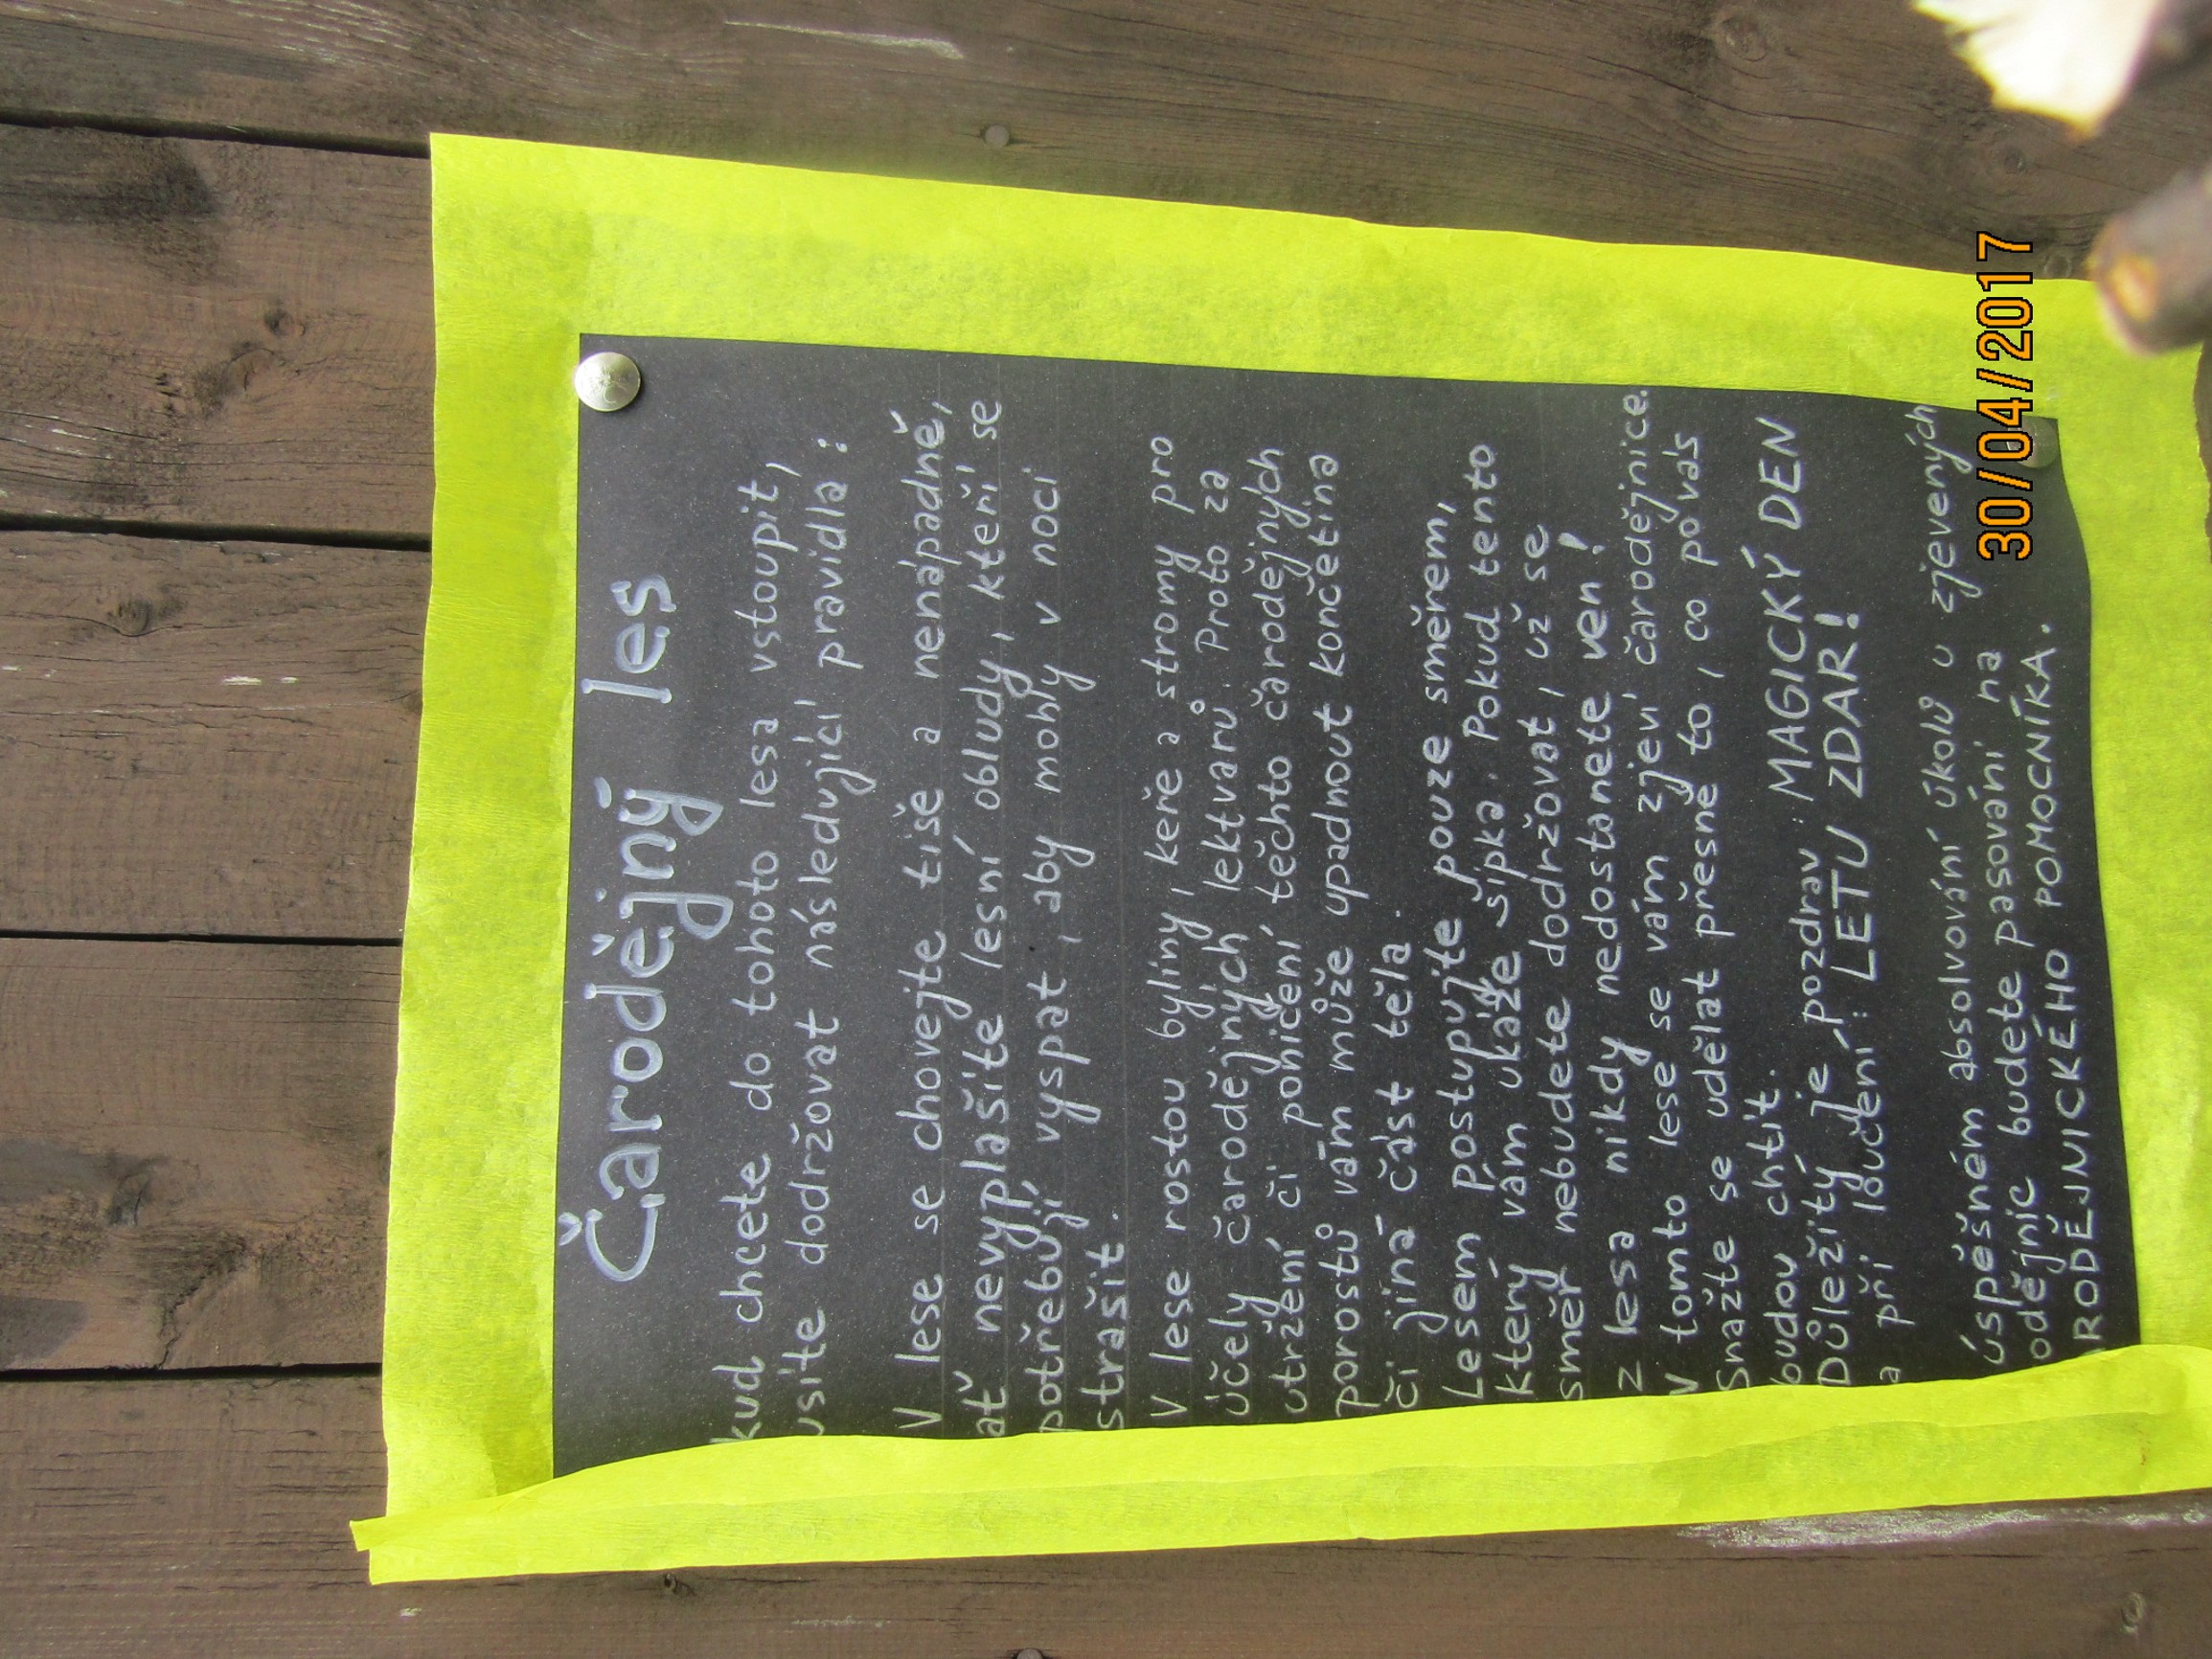 Čarodějný les
kud chcete do tohoto lesa vstoupit,
usíte dodržovat následující pravidla:
V lese se chovejte tiše a nenápadně,
ať nevyplašíte lesní obludy, kteří se
potřebují vyspat, aby mohly v noci
strašit.
V lese rostou byliny, keře a stromy pro
účely čarodějných lektvarů. Proto za
utržení či poničení těchto čarodějných
porostů vám může upadnout končetina
či jiná část těla.
Lesem postupujte pouze směrem,
který vám ukáže šipka. Pokud tento
směr nebudete dodržovat, už se
z lesa nikdy nedostanete ven!
V tomto lese se vám zjeví čarodějnice.
Snažte se udělat přesně to, co po vás
budou chtít.
Důležitý je pozdrav MAGICKÝ DEN
a při loučení: LETU ZDAR!
úspěšném absolvování úkolů u zjevených
odějnic budete pasováni na
RODĚJNICKÉHO POMOCNÍKA.
30/04/2017